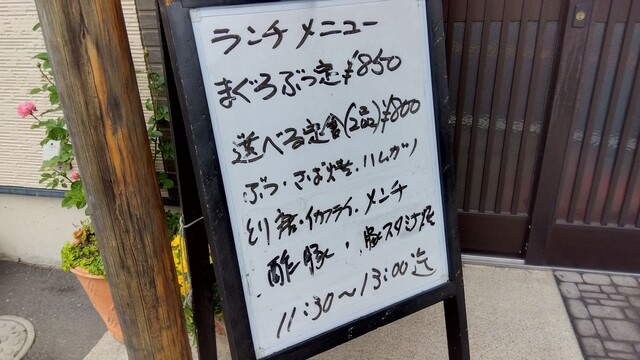 ランチメニュー
まぐろぶつ定¥850
選べる定食(2品)¥800
ぶつ・さば焼・ハムカツ
とり唐・イカフライ・メンチ
・酢豚・豚スタミナ焼
11:30～13:00迄